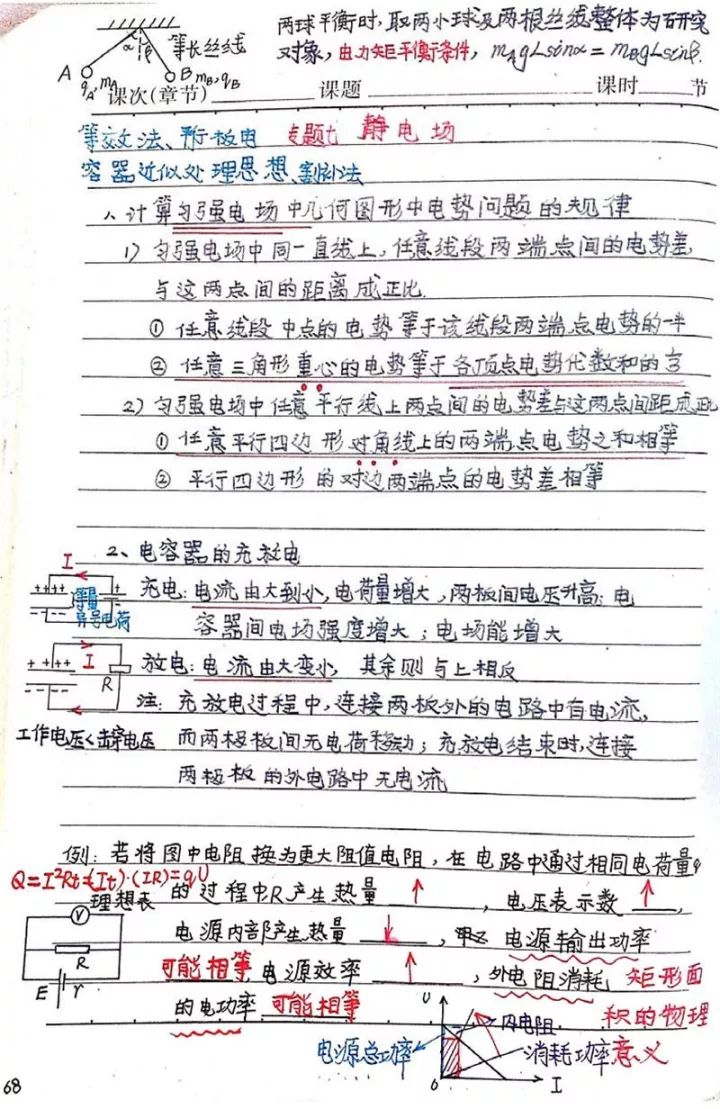 两球平衡时,取两小球及两根丝线整体为研究
对象,由力矩平衡条件,mAgLsinα=mBgLsinβ.
α β 等长丝线
A B mB,qB
qA,mA
课次(章节) 课题 课时 节
等效法、平行板电 专题七 静电场
容器近似处理思想、割补法
1、计算匀强电场中几何图形中电势问题的规律
1) 匀强电场中同一直线上,任意线段两端点间的电势差
与这两点间的距离成正比.
① 任意线段中点的电势等于该线段两端点电势的一半
② 任意三角形重心的电势等于各顶点电势代数和的⅓
2) 匀强电场中任意平行线上两点间的电势差与这两点间距成正比
① 任意平行四边形对角线上的两端点电势之和相等
② 平行四边形的对边两端点的电势差相等
2、电容器的充放电
I
充电:电流由大到小,电荷量增大,两板间电压升高;电
等量
异号电荷
容器间电场强度增大;电场能增大
I R
放电:电流由大变小,其余则与上相反
注:充放电过程中,连接两板外的电路中有电流,
工作电压<击穿电压 而两极板间无电荷移动;充放电结束时,连接
两极板的外电路中无电流
例:若将图中电阻换为更大阻值电阻,在电路中通过相同电荷量q
Q=I²Rt=(It)·(IR)=qU
理想表 的过程中,R产生热量 ↑ ,电压表示数 ↑ ,
V R E r
电源内部产生热量 ↓ , 电源输出功率
可能相等 电源效率 ↑ ,外电阻消耗 矩形面
的电功率 可能相等 积的物理
U 内电阻
电源总功率 消耗功率 意义
0 I
68